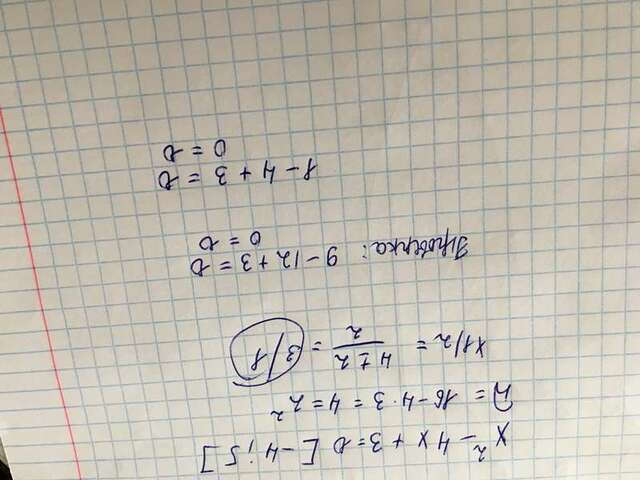 x² - 4x + 3 = 0 [-4; 5]
D = 16 - 4·3 = 4 = 2²
x1/2 = (4 ± 2)/2 = 3/1
Проверка: 9 - 12 + 3 = 0
0 = 0
1 - 4 + 3 = 0
0 = 0